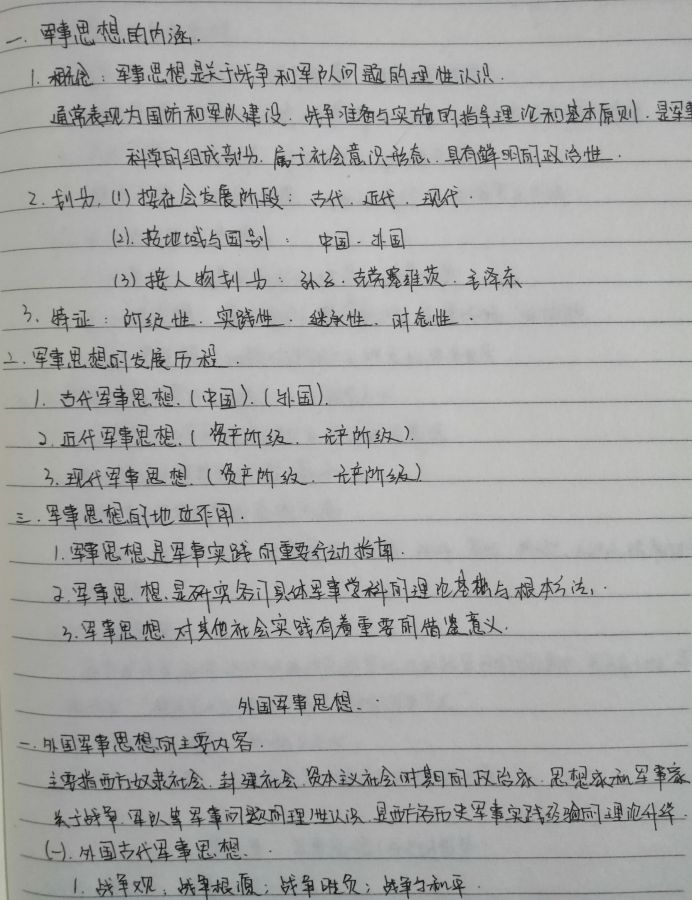 一、军事思想的内涵.
1. 概念：军事思想是关于战争和军队问题的理性认识.
通常表现为国防和军队建设、战争准备与实施的指导理论和基本原则. 是军事
科学的组成部分. 属于社会意识形态、具有鲜明的政治性.
2. 划分. (1) 按社会发展阶段：古代. 近代. 现代.
(2). 按地域与国别：中国. 外国
(3) 按人物划分：孙子. 克劳塞维茨. 毛泽东
3. 特征：阶级性. 实践性. 继承性. 时态性.
二、军事思想的发展历程.
1. 古代军事思想. (中国). (外国).
2. 近代军事思想. (资产阶级. 无产阶级).
3. 现代军事思想. (资产阶级. 无产阶级)
三. 军事思想的地位作用.
1. 军事思想是军事实践的重要行动指南.
2. 军事思想是研究各门具体军事学科的理论基础与根本方法.
3. 军事思想对其他社会实践有着重要的借鉴意义.
外国军事思想.
一. 外国军事思想的主要内容.
主要指西方奴隶社会. 封建社会. 资本主义社会时期的政治家. 思想家和军事家
关于战争. 军队等军事问题的理性认识. 是西方各历史军事实践经验的理论升华.
(一). 外国古代军事思想.
1. 战争观：战争根源；战争胜负；战争与和平.